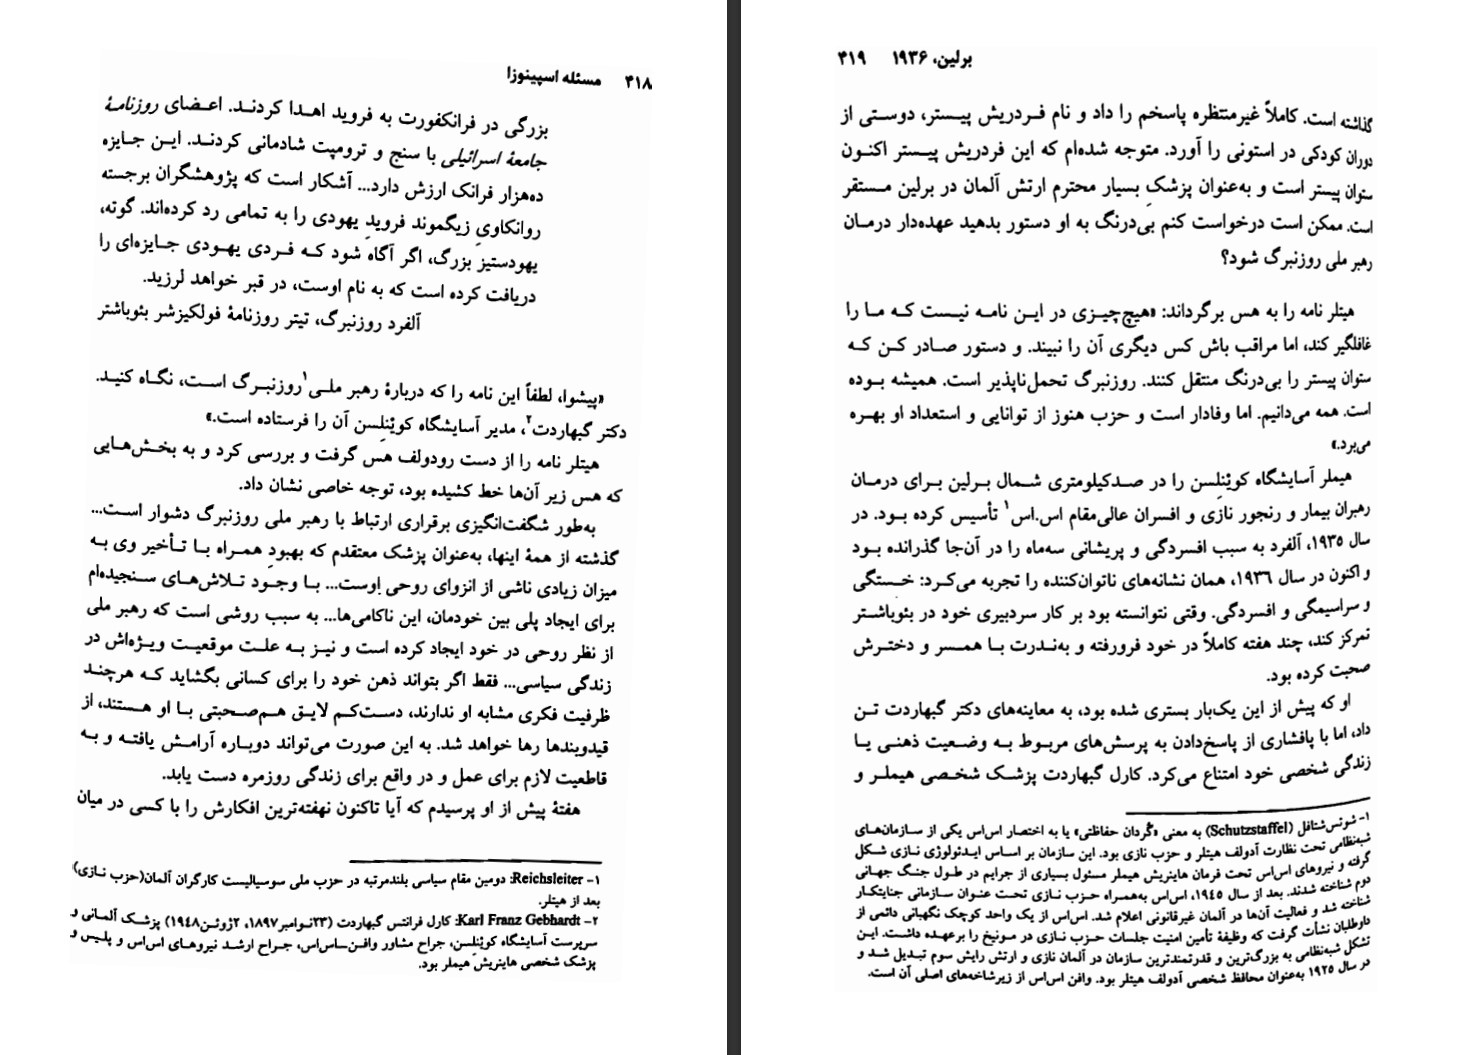 ۴۱۸ مسئله اسپینوزا
بزرگی در فرانکفورت به فروید اهدا کردند. اعضای روزنامهٔ
جامعهٔ اسرائیلی با سنج و ترومپت شادمانی کردند. این جایزه
ده‌هزار فرانک ارزش دارد... آشکار است که پژوهشگران برجسته
روانکاویِ زیگموند فرویدِ یهودی را به تمامی رد کرده‌اند. گوته،
یهودستیز بزرگ، اگر آگاه شود که فردی یهودی جایزه‌ای را
دریافت کرده است که به نام اوست، در قبر خواهد لرزید.
آلفرد روزنبرگ، تیتر روزنامهٔ فولکیزشر بئوباشتر
«پیشوا، لطفاً این نامه را که دربارهٔ رهبر ملی۱ روزنبرگ است، نگاه کنید.
دکتر گبهاردت۲، مدیر آسایشگاه کویْنلِسن آن را فرستاده است.»
هیتلر نامه را از دست رودولف هس گرفت و بررسی کرد و به بخش‌هایی
که هس زیر آن‌ها خط کشیده بود، توجه خاصی نشان داد.
به‌طور شگفت‌انگیزی برقراری ارتباط با رهبر ملی روزنبرگ دشوار است...
گذشته از همهٔ اینها، به‌عنوان پزشک معتقدم که بهبودِ همراه با تأخیر وی به
میزان زیادی ناشی از انزوای روحی اوست... با وجود تلاش‌های سنجیده‌ام
برای ایجاد پلی بین خودمان، این ناکامی‌ها... به سبب روشی است که رهبر ملی
از نظر روحی در خود ایجاد کرده است و نیز به علت موقعیت ویژه‌اش در
زندگی سیاسی... فقط اگر بتواند ذهن خود را برای کسانی بگشاید که هرچند
ظرفیت فکری مشابه او ندارند، دست‌کم لایق هم‌صحبتی با او هستند، از
قیدوبندها رها خواهد شد. به این صورت می‌تواند دوباره آرامش یافته و به
قاطعیت لازم برای عمل و در واقع برای زندگی روزمره دست یابد.
هفتهٔ پیش از او پرسیدم که آیا تاکنون نهفته‌ترین افکارش را با کسی در میان
۱- Reichsleiter: دومین مقام سیاسی بلندمرتبه در حزب ملی سوسیالیست کارگران آلمان(حزب نازی)
بعد از هیتلر.
۲- Karl Franz Gebhardt: کارل فرانتس گبهاردت (۲۳نوامبر۱۸۹۷، ۲ژوئن۱۹۴۸) پزشک آلمانی و
سرپرست آسایشگاه کویْنلِسن، جراح مشاور وافن-اس‌اس، جراح ارشد نیروهای اس‌اس و پلیس و
پزشک شخصی هاینریش هیملر بود.
برلین، ۱۹۳۶ ۴۱۹
گذاشته است. کاملاً غیرمنتظره پاسخم را داد و نام فردریش پیستر، دوستی از
دوران کودکی در استونی را آورد. متوجه شده‌ام که این فردریش پیستر اکنون
ستوان پیستر است و به‌عنوان پزشکِ بسیار محترم ارتش آلمان در برلین مستقر
است. ممکن است درخواست کنم بی‌درنگ به او دستور بدهید عهده‌دار درمان
رهبر ملی روزنبرگ شود؟
هیتلر نامه را به هس برگرداند: «هیچ‌چیزی در این نامه نیست که ما را
غافلگیر کند، اما مراقب باش کس دیگری آن را نبیند. و دستور صادر کن که
ستوان پیستر را بی‌درنگ منتقل کنند. روزنبرگ تحمل‌ناپذیر است. همیشه بوده
است. همه می‌دانیم. اما وفادار است و حزب هنوز از توانایی و استعداد او بهره
می‌برد.»
هیملر آسایشگاه کویْنلِسن را در صدکیلومتری شمال برلین برای درمان
رهبران بیمار و رنجور نازی و افسران عالی‌مقام اس.اس۱ تأسیس کرده بود. در
سال ۱۹۳۵، آلفرد به سبب افسردگی و پریشانی سه‌ماه را در آن‌جا گذرانده بود
و اکنون در سال ۱۹۳۶، همان نشانه‌های ناتوان‌کننده را تجربه می‌کرد: خستگی
و سراسیمگی و افسردگی. وقتی نتوانسته بود بر کار سردبیری خود در بئوباشتر
تمرکز کند، چند هفته کاملاً در خود فرورفته و به‌ندرت با همسر و دخترش
صحبت کرده بود.
او که پیش از این یک‌بار بستری شده بود، به معاینه‌های دکتر گبهاردت تن
داد، اما با پافشاری از پاسخ‌دادن به پرسش‌های مربوط به وضعیت ذهنی یا
زندگی شخصی خود امتناع می‌کرد. کارل گبهاردت پزشک شخصی هیملر و
۱- شوتس‌شتافل (Schutzstaffel) به معنی «گُردان حفاظتی» یا به اختصار اس‌اس یکی از سازمان‌های
شبه‌نظامی تحت نظارت آدولف هیتلر و حزب نازی بود. این سازمان بر اساس ایدئولوژی نازی شکل
گرفته و نیروهای اس‌اس تحت فرمان هاینریش هیملر مسئول بسیاری از جرایم در طول جنگ جهانی
دوم شناخته شدند. بعد از سال ۱۹۴۵، اس‌اس به‌همراه حزب نازی تحت عنوان سازمانی جنایتکار
شناخته شد و فعالیت آن‌ها در آلمان غیرقانونی اعلام شد. اس‌اس از یک واحد کوچک نگهبانی دائمی از
داوطلبان نشأت گرفت که وظیفهٔ تأمین امنیت جلسات حزب نازی در مونیخ را برعهده داشت. این
تشکل شبه‌نظامی به بزرگ‌ترین و قدرتمندترین سازمان در آلمان نازی و ارتش رایش سوم تبدیل شد و
در سال ۱۹۲۵ به‌عنوان محافظ شخصی آدولف هیتلر بود. وافن اس‌اس از زیرشاخه‌های اصلی آن است.